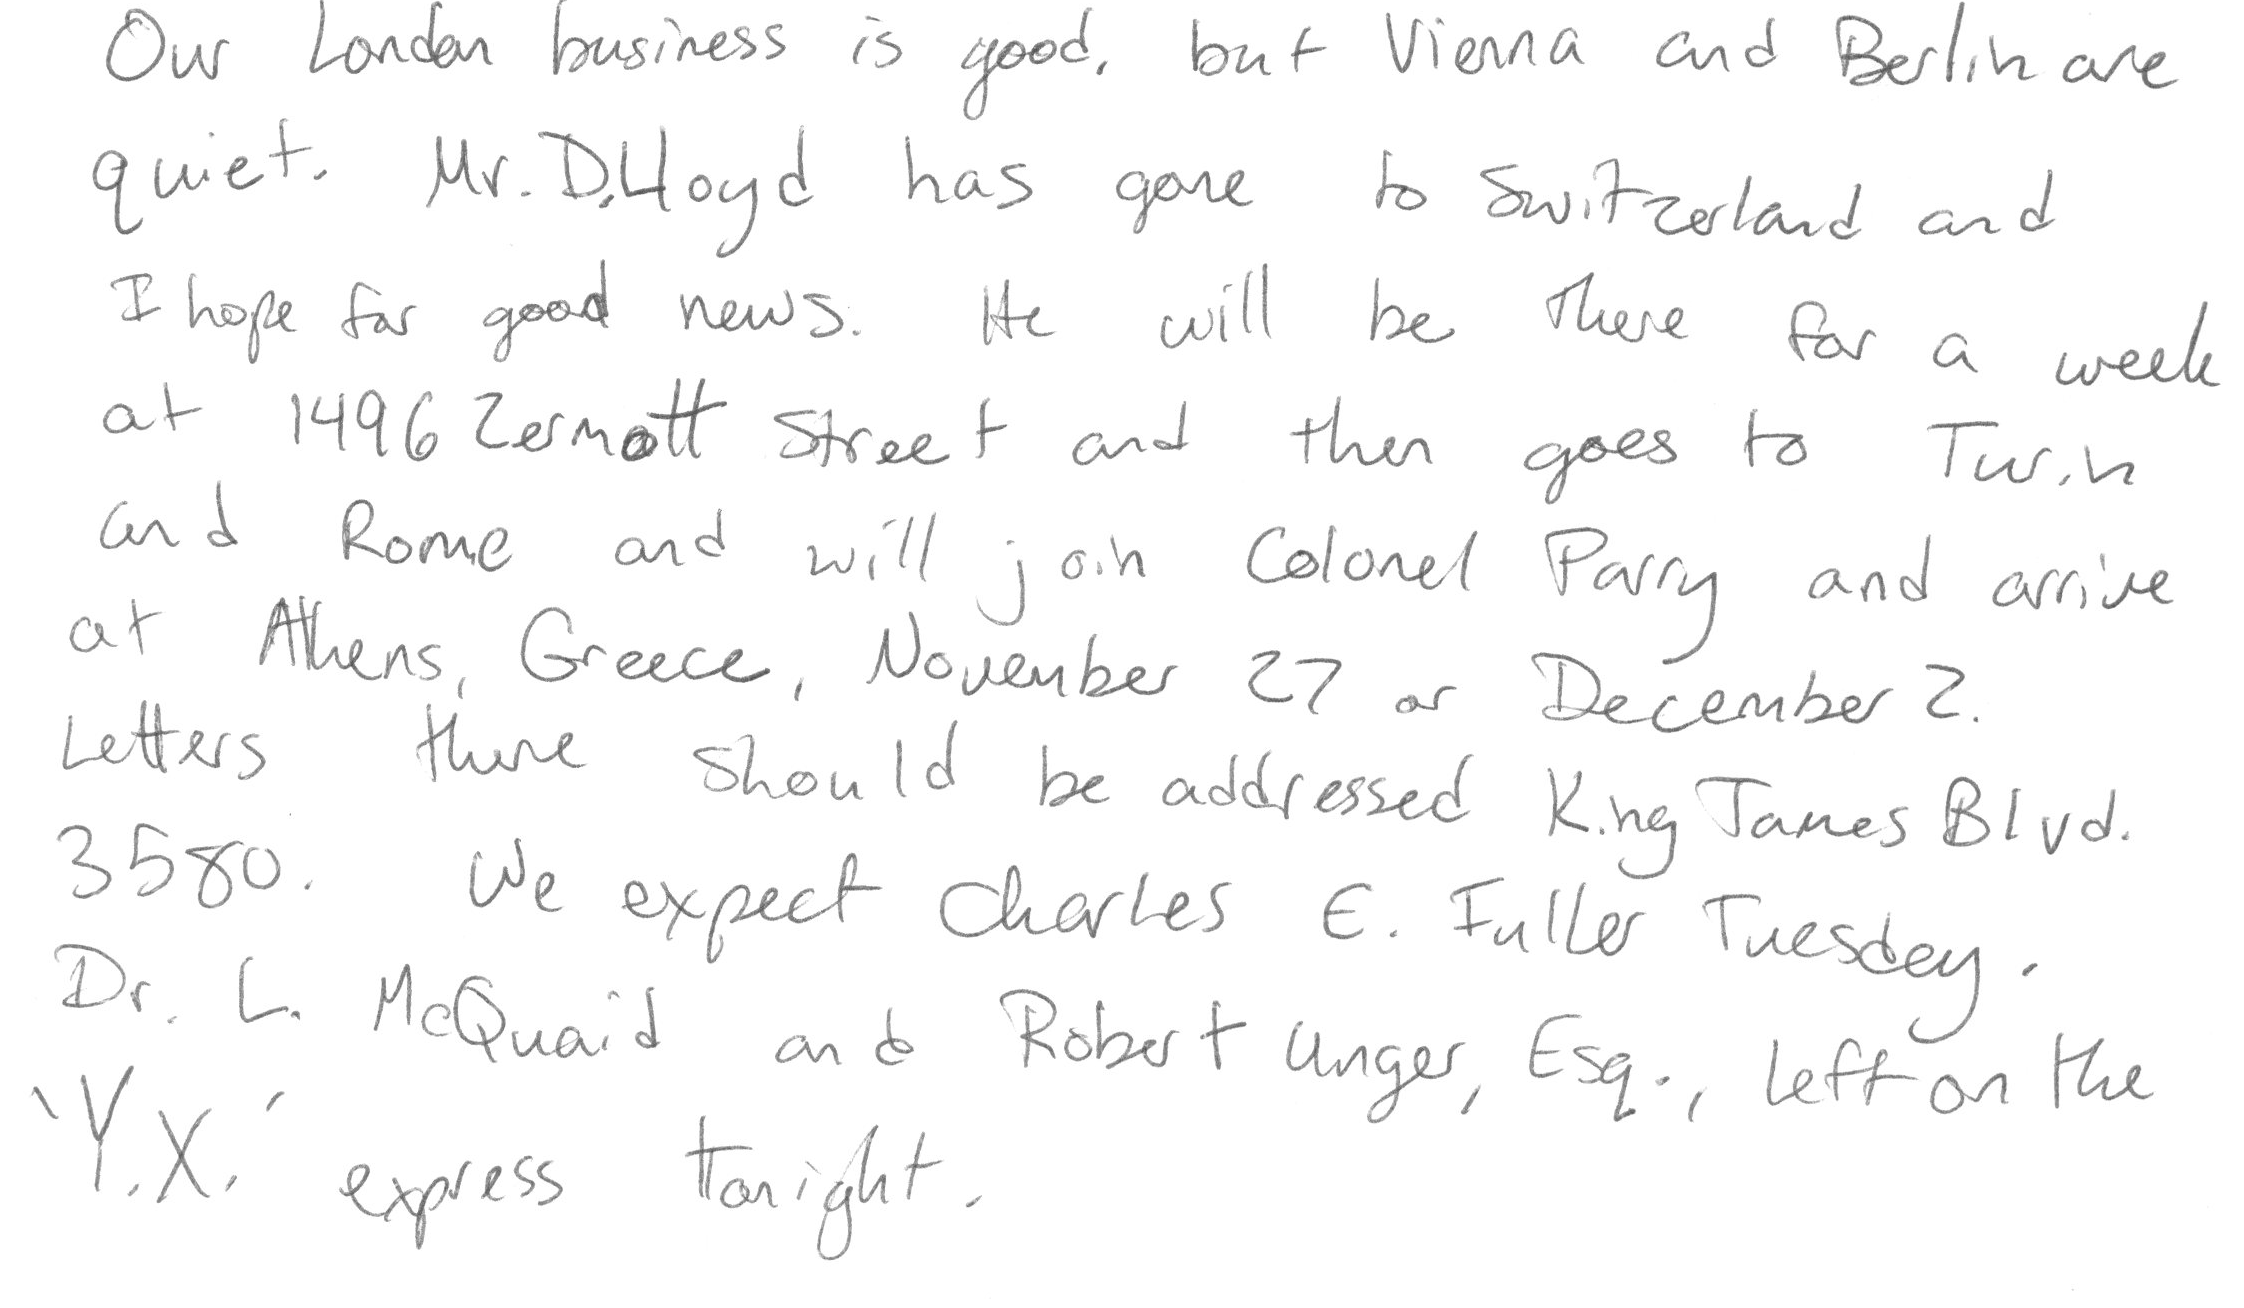 Our London business is good, but Vienna and Berlin are
quiet. Mr. D. Lloyd has gone to Switzerland and
I hope for good news. He will be there for a week
at 1496 Zermott Street and then goes to Turin
and Rome and will join Colonel Parry and arrive
at Athens, Greece, November 27 or December 2.
Letters there should be addressed King James Blvd.
3580. We expect Charles E. Fuller Tuesday.
Dr. L. McQuaid and Robert Unger, Esq., left on the
'Y.X.' express tonight.